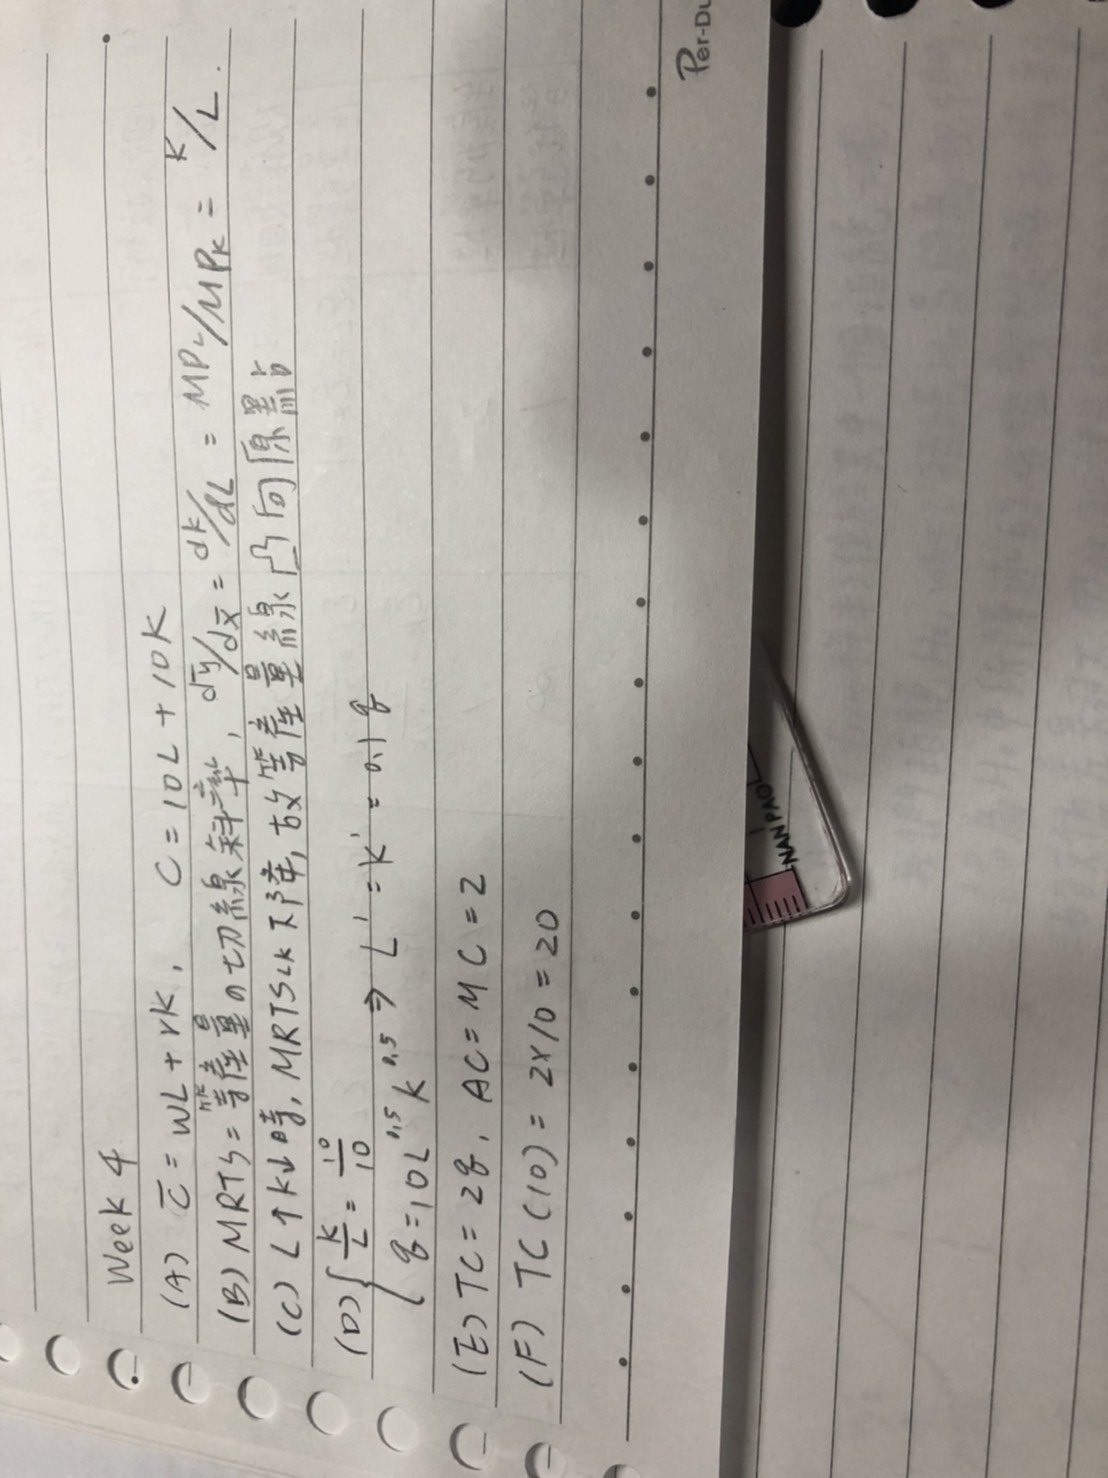 Week 4
(A) C̅ = WL + rK, C = 10L + 10K
(B) MRTS = 等產量の切線斜率, dy/dx = dK/dL = MPL/MPK = K/L.
(C) L↑K↓時, MRTSLK下降, 故等產量線凸向原點
(D) { K/L = 10/10
q = 10L^0.5 K^0.5 ⇒ L' = K' = 0.1q
(E) TC = 2q, AC = MC = 2
(F) TC(10) = 2×10 = 20
Per-Du
NAN PAO